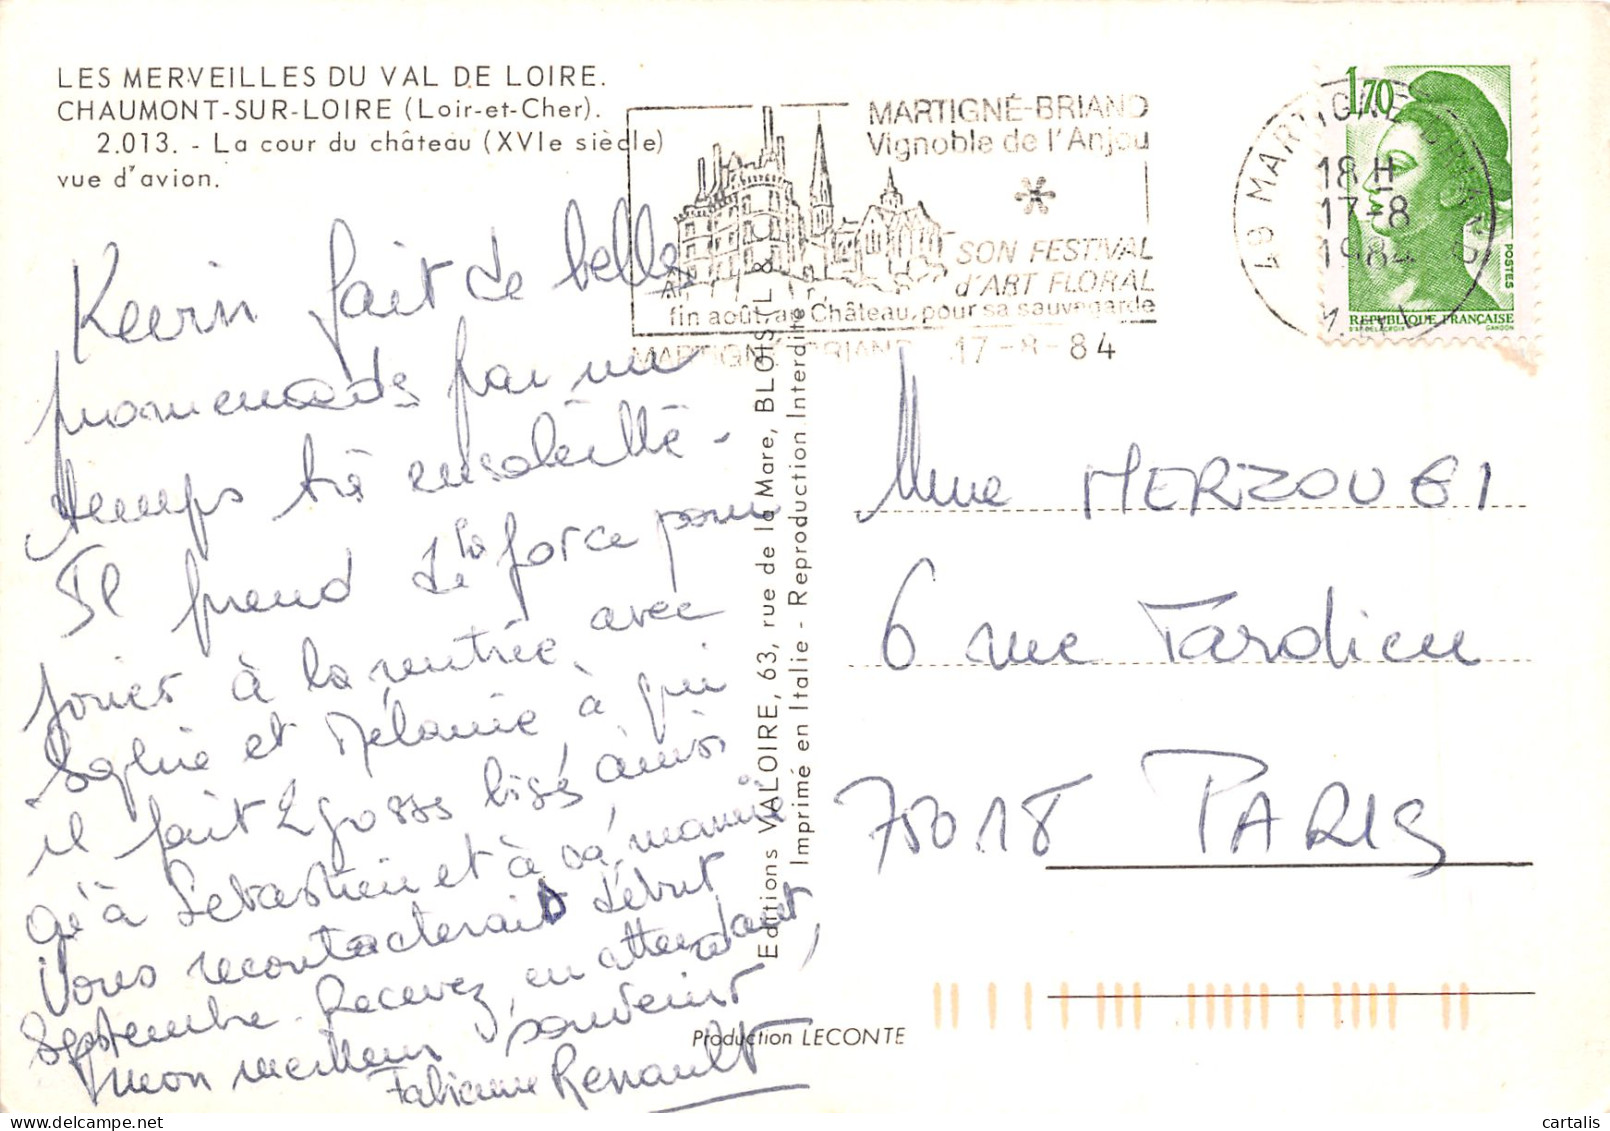 LES MERVEILLES DU VAL DE LOIRE.
CHAUMONT-SUR-LOIRE (Loir-et-Cher).
2.013. - La cour du château (XVIe siècle)
vue d'avion.
MARTIGNÉ-BRIAND
Vignoble de l'Anjou
SON FESTIVAL
d'ART FLORAL
fin août, au Château, pour sa sauvegarde
MARTIGNÉ-BRIAND 17-8-84
49 MARTIGNE-BRIAND
18 H
17-8
1984
1,70
POSTES
REPUBLIQUE FRANÇAISE
D'AP. DELACROIX GANDON
Kevin fait de belles
promenades par un
temps très ensoleillé -
Il prend de la force pour
jouer à la rentrée avec
Sophie et Mélanie à qui
il fait 2 gosses bisés ainsi
qu'à Sebastien et à sa mamie
Vous recontacterais début
Septembre. Recevez, en attendant,
mon meilleur souvenir
Fabienne Renault
Editions VALOIRE, 63, rue de la Mare, BLOIS (L. & C.)
Imprimé en Italie - Reproduction Interdite
Mme MERZOUGI
6 rue Tardieu
75018 PARIS
Production LECONTE
cartalis